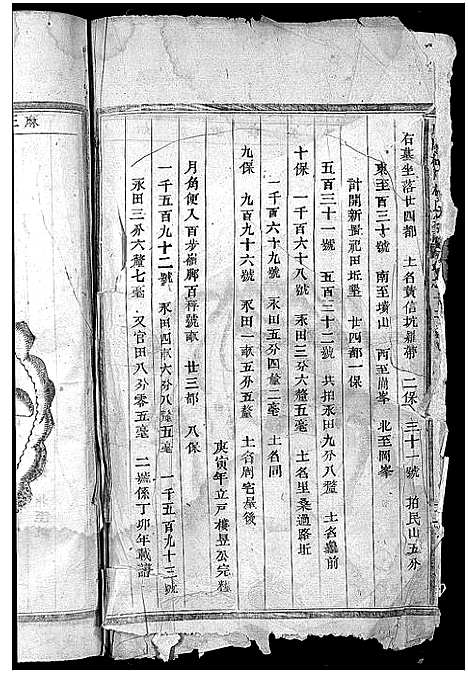 右墓坐落廿四都 土名黃信坑羅帶 二保 三十一號 拍民山五分
東至百三十號 南至墳山 西至崗峯 北至岡峯
計開新置祀田坵墾 廿四都一保
五百三十一號 五百三十二號 共拍永田九分八釐 土名 前
十保 一千六百六十八號 永田三分六釐五毫 土名里桑過路坵
一千六百六十九號 永田五分四釐二毫 土名同
九保 九百九十六號 永田一畝五分五釐 土名周宅屋後
庚寅年立戶樓昱公完粮
月角便又百步嶺腳百秤號畝 廿三都 八保
一千五百九十二號 永田四畝六分八釐五毫 一千五百九十三號
永田三分六釐七毫 又官田八分零五毫 二號係丁卯年載譜